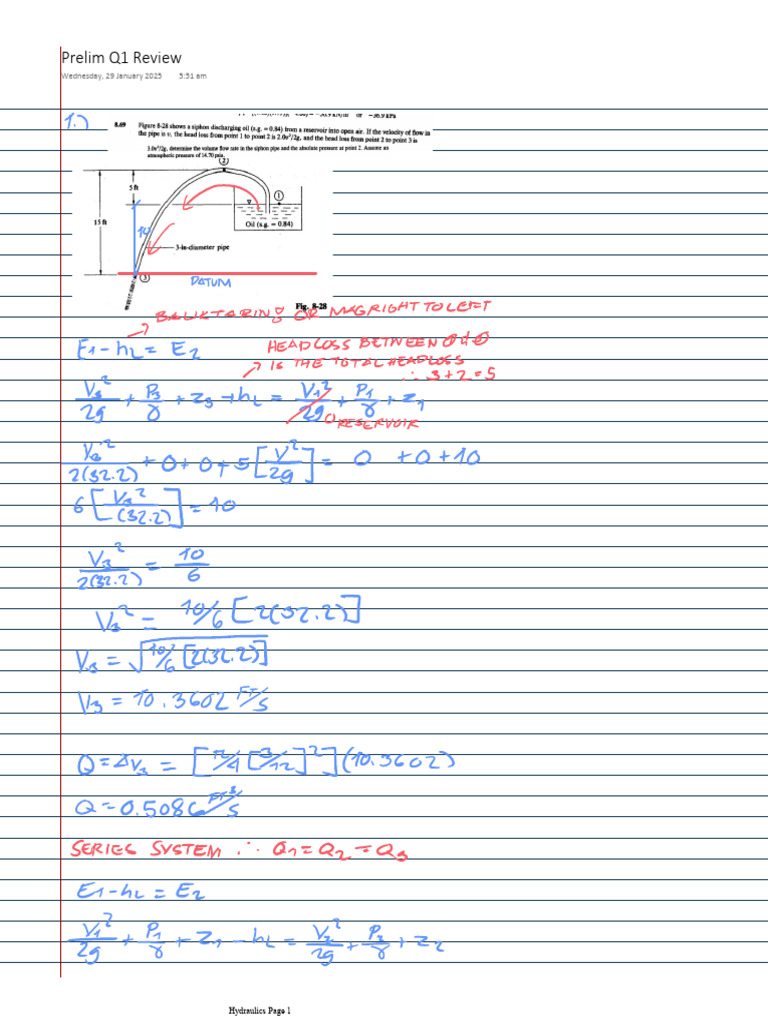 Prelim Q1 Review
Wednesday, 29 January 2025 5:51 am
1.)
8.69 Figure 8-28 shows a siphon discharging oil (s.g. = 0.84) from a reservoir into open air. If the velocity of flow in
the pipe is v, the head loss from point 1 to point 2 is 2.0v²/2g, and the head loss from point 2 to point 3 is
3.0v²/2g, determine the volume flow rate in the siphon pipe and the absolute pressure at point 2. Assume an
atmospheric pressure of 14.70 psia.
2
5 ft
1
15 ft
10
Oil (s.g. = 0.84)
3-in-diameter pipe
3
DATUM
Fig. 8-28
BALIKTARING OR MAGRIGHT TO LEFT
E1 - hL = E2
HEADLOSS BETWEEN 1 & 3
IS THE TOTAL HEADLOSS
∴ 3+2=5
V3²/2g + P3/γ + Z3 + hL = V1²/2g + P1/γ + Z1
0 RESERVOIR
V3²/2(32.2) + 0 + 0 + 5[V²/2g] = 0 + 0 + 10
6[V3²/(32.2)] = 10
V3²/2(32.2) = 10/6
V3² = 10/6[2(32.2)]
V3 = √10/6[2(32.2)]
V3 = 10.3602 FT/S
Q = AV3 = [π/4[3/12]²](10.3602)
Q = 0.5086 FT³/S
SERIES SYSTEM ∴ Q1 = Q2 = Q3
E1 - hL = E2
V1²/2g + P1/γ + Z1 - hL = V2²/2g + P2/γ + Z2
Hydraulics Page 1